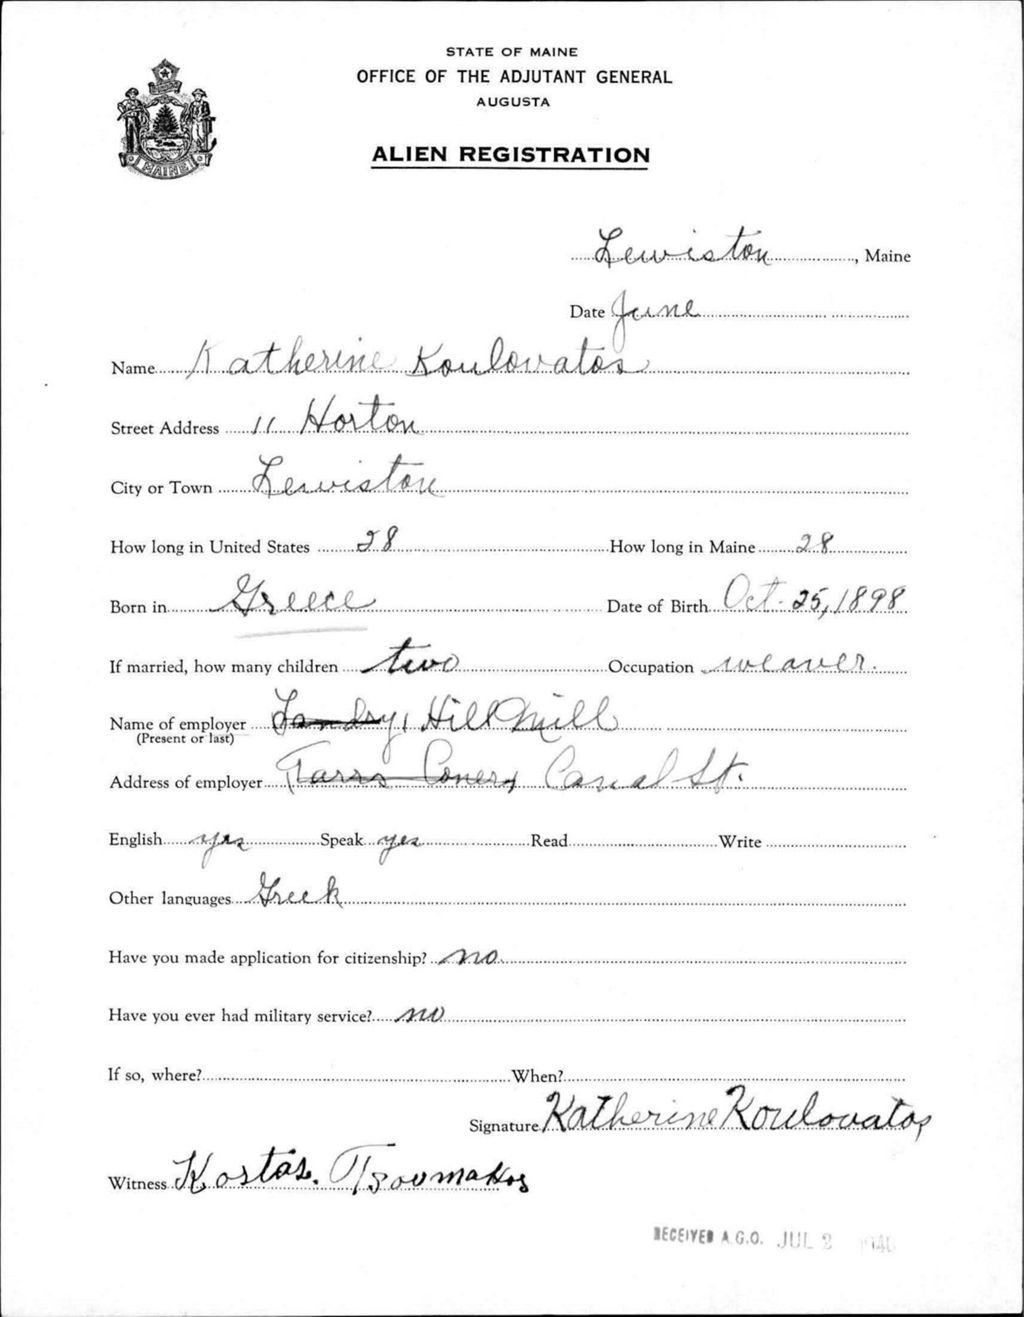 STATE OF MAINE
OFFICE OF THE ADJUTANT GENERAL
AUGUSTA
ALIEN REGISTRATION
MAINE
Lewiston, Maine
Date June
Name Katherine Koulovatos
Street Address 11 Horton
City or Town Lewiston
How long in United States 28 How long in Maine 28
Born in Greece Date of Birth Oct. 25, 1898
If married, how many children two Occupation weaver.
Name of employer Landry, Hill Mill
(Present or last)
Address of employer Canal St.
English yes Speak yes Read Write
Other languages Greek
Have you made application for citizenship? no
Have you ever had military service? no
If so, where? When?
Signature Katherine Koulovatos
Witness Kostas. Tsoumakos
RECEIVED A.G.O. JUL 2 1940